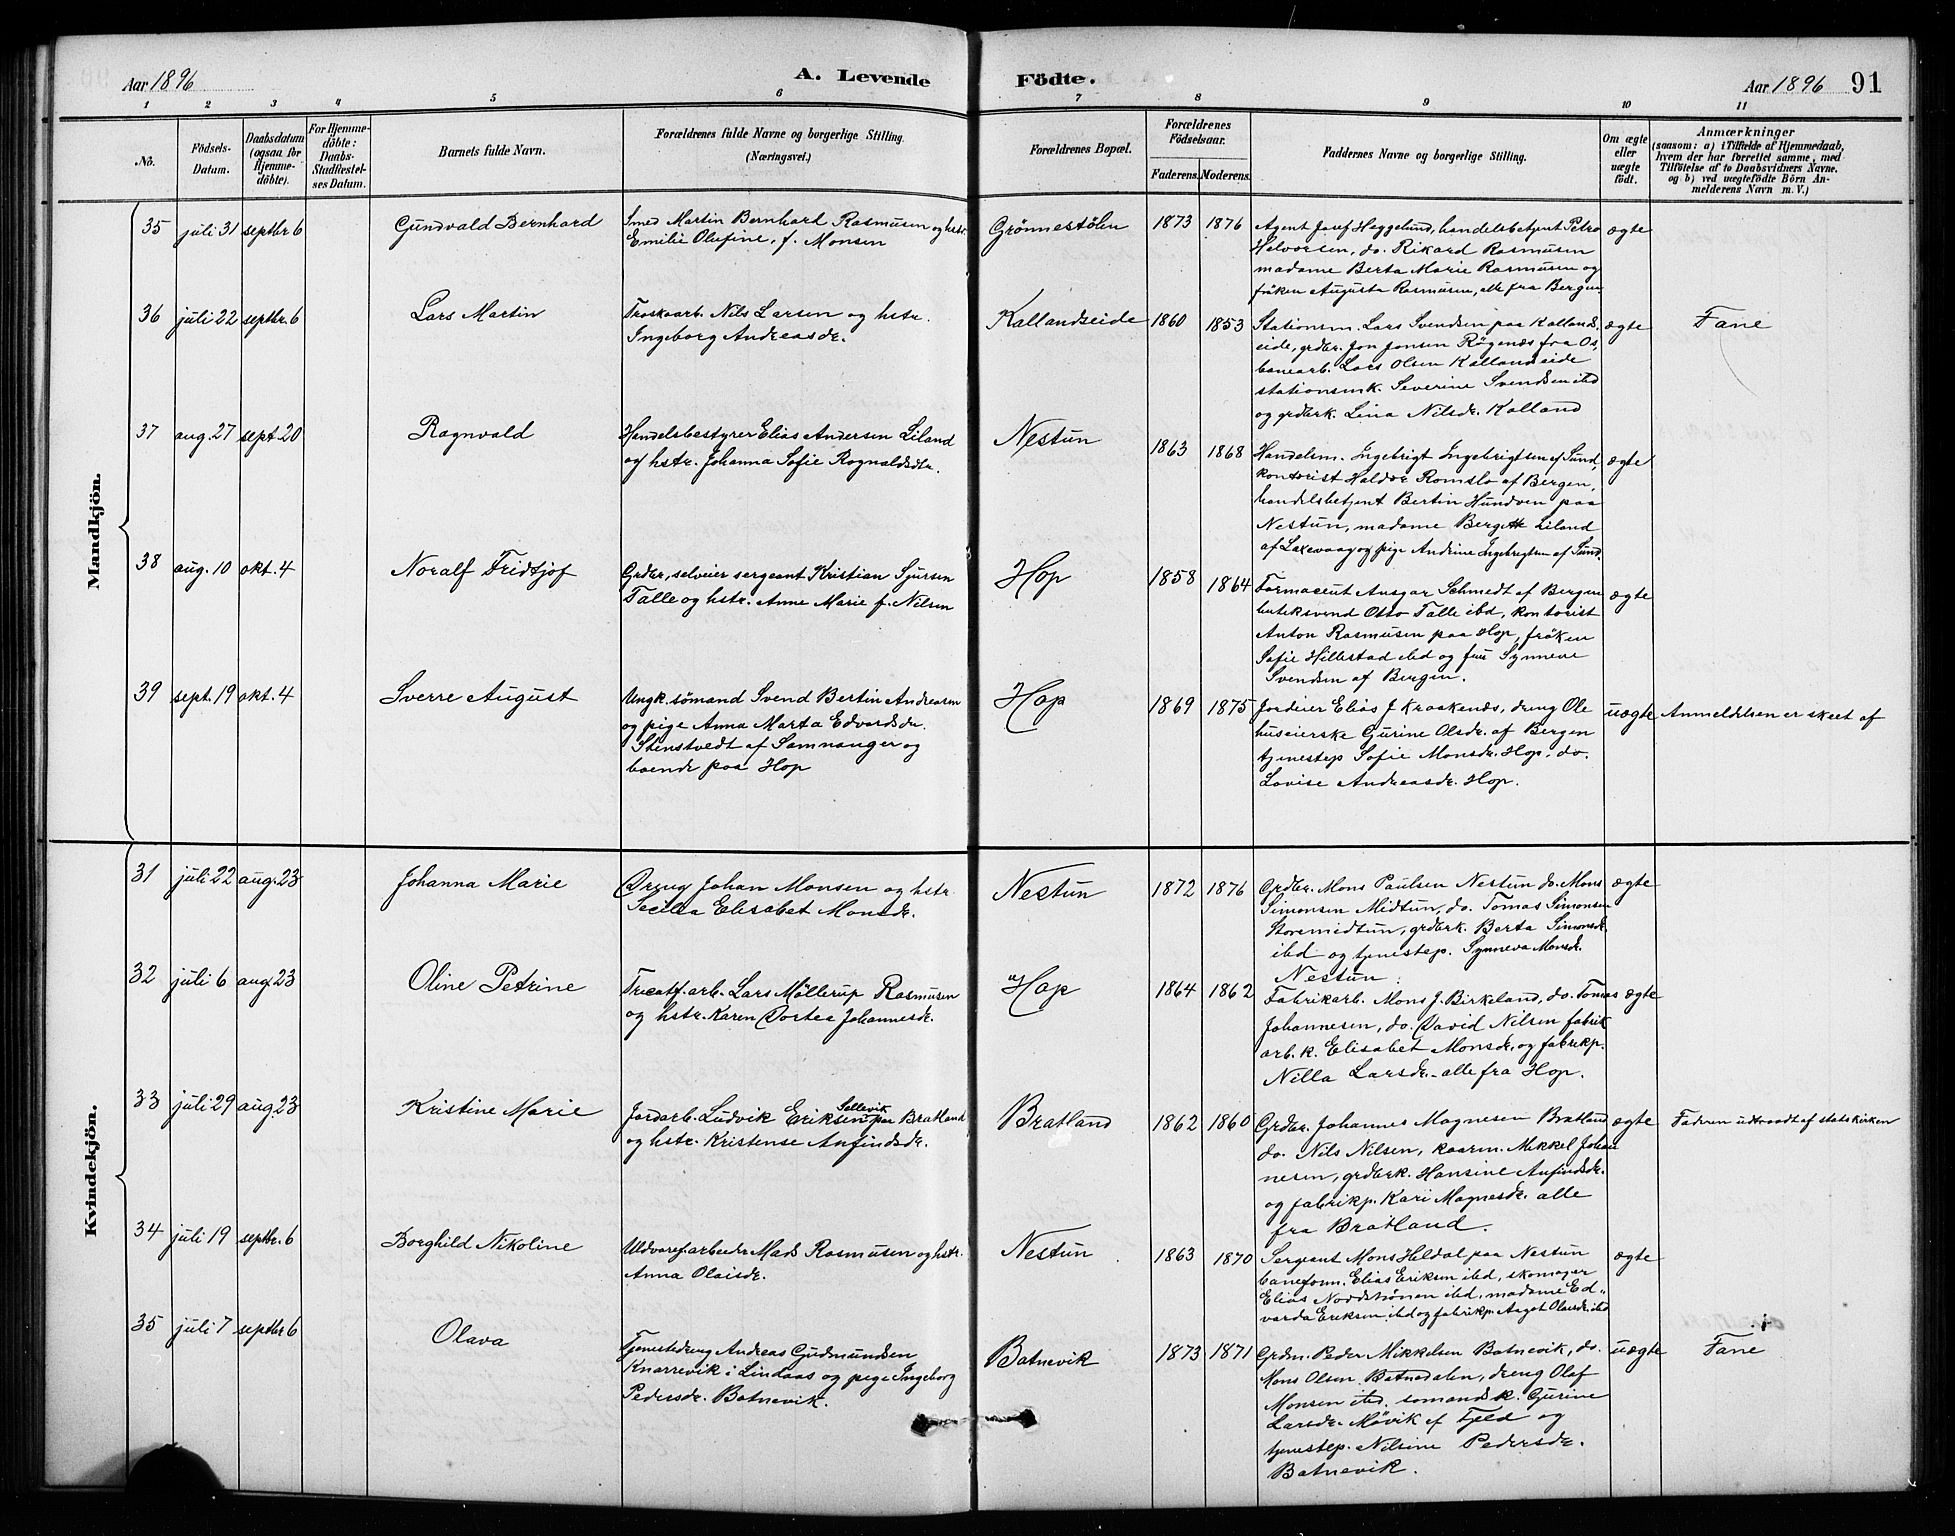 Aar 1896
A. Levende
Födte.
Aar 1896
91
1 2 3 4 5 6 7 8 9 10 11
No.
Födsels-
Datum.
Daabsdatum
(ogsaa for
Hjemme-
döbte).
For Hjemme-
döbte:
Daabs-
Stadfæstel-
ses Datum.
Barnets fulde Navn.
Forældrenes fulde Navne og borgerlige Stilling.
(Næringsvei.)
Forældrenes Bopæl.
Forældrenes
Födselsaar.
Faderens. Moderens.
Faddernes Navne og borgerlige Stilling.
Om ægte
eller
uægte
födt.
Anmærkninger
(saasom: a) i Tilfælde af Hjemmedaab,
hvem der har forrettet samme, med
Tilföielse af to Daabsvidners Navne.
og b) ved uægtefödte Börn An-
melderens Navn m. V.)
Mandkjön.
35 juli 31 septbr 6 Gundvald Bernhard
Smed Martin Bernhard Rasmusen og hstr.
Emilie Olufine, f. Monsen
Grönnestölen 1873 1876
Agent Josef Heggelund, handelsbetjent Petro
Halvorsen, do. Rikard Rasmusen
madame Berta Marie Rasmusen og
fröken Augusta Rasmusen, alle fra Bergen.
ægte
36 juli 22 septbr. 6 Lars Martin
Træskoarb. Nils Larsen og hstr.
Ingeborg Andreasdr.
Kallandseide 1860 1853
Stationsm. Lars Svendsen paa Kallands
eide, grdbr. Jon Jonsen Røgenæs fra Os,
banearb. Lars Olsen Kallandseide
stationsmk. Severine Svendsen ibd
og grdbrk. Lina Nilsdr. Kalland
ægte
Fane
37 aug. 27 sept. 20 Ragnvald
Handelsbestyrer Elias Andersen Liland
og hstr. Johanna Sofie Rognaldsdtr.
Nestun 1863 1868
Handelsm. Ingebrigt Ingebrigtsen af Sund,
kontorist Haldor Romslo af Bergen,
handelsbetjent Bertin Hundven paa
Nestun, madame Bergitte Liland
af Laxevaag og pige Andrine Ingebrigtsen af Sund.
ægte
38 aug. 10 okt. 4 Noralf Fridtjof
Grdbr., selveier sergeant Kristian Sjursen
Talle og hstr. Anne Marie f. Nilsen
Hop 1858 1864
Farmaceut Ansgar Schmedt af Bergen
butiksvend Otto Talle ibd, kontorist
Anton Rasmusen paa Hop, fröken
Sofie Hillestad ibd og fru Synneve
Svendsen af Bergen.
ægte
39 sept. 19 okt. 4 Sverre August
Ungk. sömand Svend Bertin Andreasen
og pige Anna Marta Edvardsdr.
Stenstvedt af Samnanger og
boende paa Hop
Hop 1869 1875
Jordeier Elias J. Kraakenæs, dreng Ole
huseierske Gurine Olsdr. af Bergen
tjenestep Sofie Monsdr. Hop, do.
Lovise Andreasdr. Hop.
uægte
Anmeldelsen er skeet af
Kvindekjön.
31 juli 22 aug. 23 Johanna Marie
Dreng Johan Monsen og hstr.
Secilia Elisabet Monsdr.
Nestun 1872 1876
Grdbr. Mons Paulsen Nestun do. Mons
Simonsen Midtun, do. Tomas Simonsen
Storemidtun, grdbrk. Berta Simonsdr.
ibd og tjenestep. Synneva Monsdr.
Nestun.
ægte
32 juli 6 aug. 23 Oline Petrine
Tricotf.arb. Lars Möllerup Rasmusen
og hstr. Karen Dortea Johannesdr.
Hop 1864 1862
Fabrikarb. Mons J. Birkeland, do. Tomas
Johannesen, do. David Nilsen fabrik
arb. k. Elisabet Monsdr. og fabrikp.
Nilla Larsdr. alle fra Hop.
ægte
33 juli 29 aug. 23 Kristine Marie
Jordarb. Ludvik Eriksen Sellevik paa Bratland
og hstr. Kristense Anfindsdr.
Bratland 1862 1860
Grdbr. Johannes Magnesen Bratland
do. Nils Nilsen, kaarm. Mikkel Johan
nesen, grdbrk. Hansine Anfindsdr.
og fabrikp. Kari Magnesdr. alle
fra Bratland.
ægte
Faderen udtraadt af statskirken
34 juli 19 septbr. 6 Borghild Nikoline
Uldvaref.arbeider Mads Rasmusen og hstr.
Anna Olaisdr.
Nestun 1863 1870
Sergeant Mons Heldal paa Nestun
baneform. Elias Eriksen ibd, skomager
Elias ibd, madame Ed-
varda Eriksen ibd og fabrikp. Aagot Olaisdr. ibd
ægte
35 juli 7 septbr 6 Olava
Tjenestedreng Andreas Gudmundsen
Knarrevik i Lindaas og pige Ingeborg
Pedersdr. Batnevik.
Batnevik 1873 1871
Grdm. Peder Mikkelsen Batnevik, do.
Mons Olsen Batnedalen, dreng Olaf
Monsen ibd. sömands k. Gurine
Larsdr. Mövik af Fjeld og
tjenestep. Nilsine Pedersdr.
Batnevik.
uægte
Fane